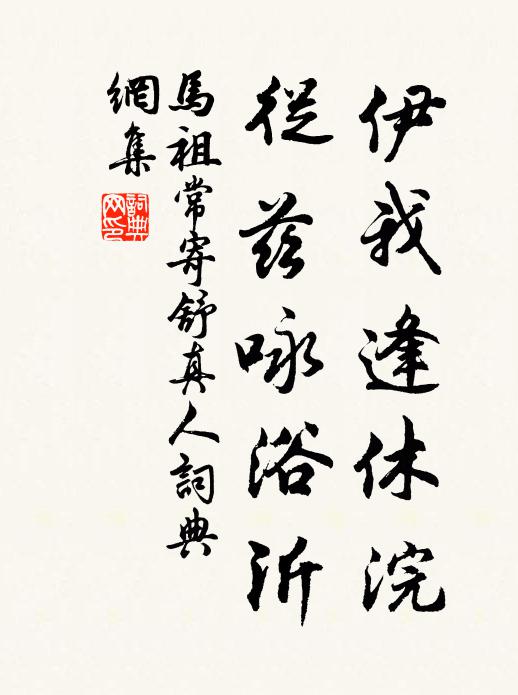 伊我逢休浣
從茲咏浴沂
馬祖常寄舒真人詞典
網集
詞典
网印